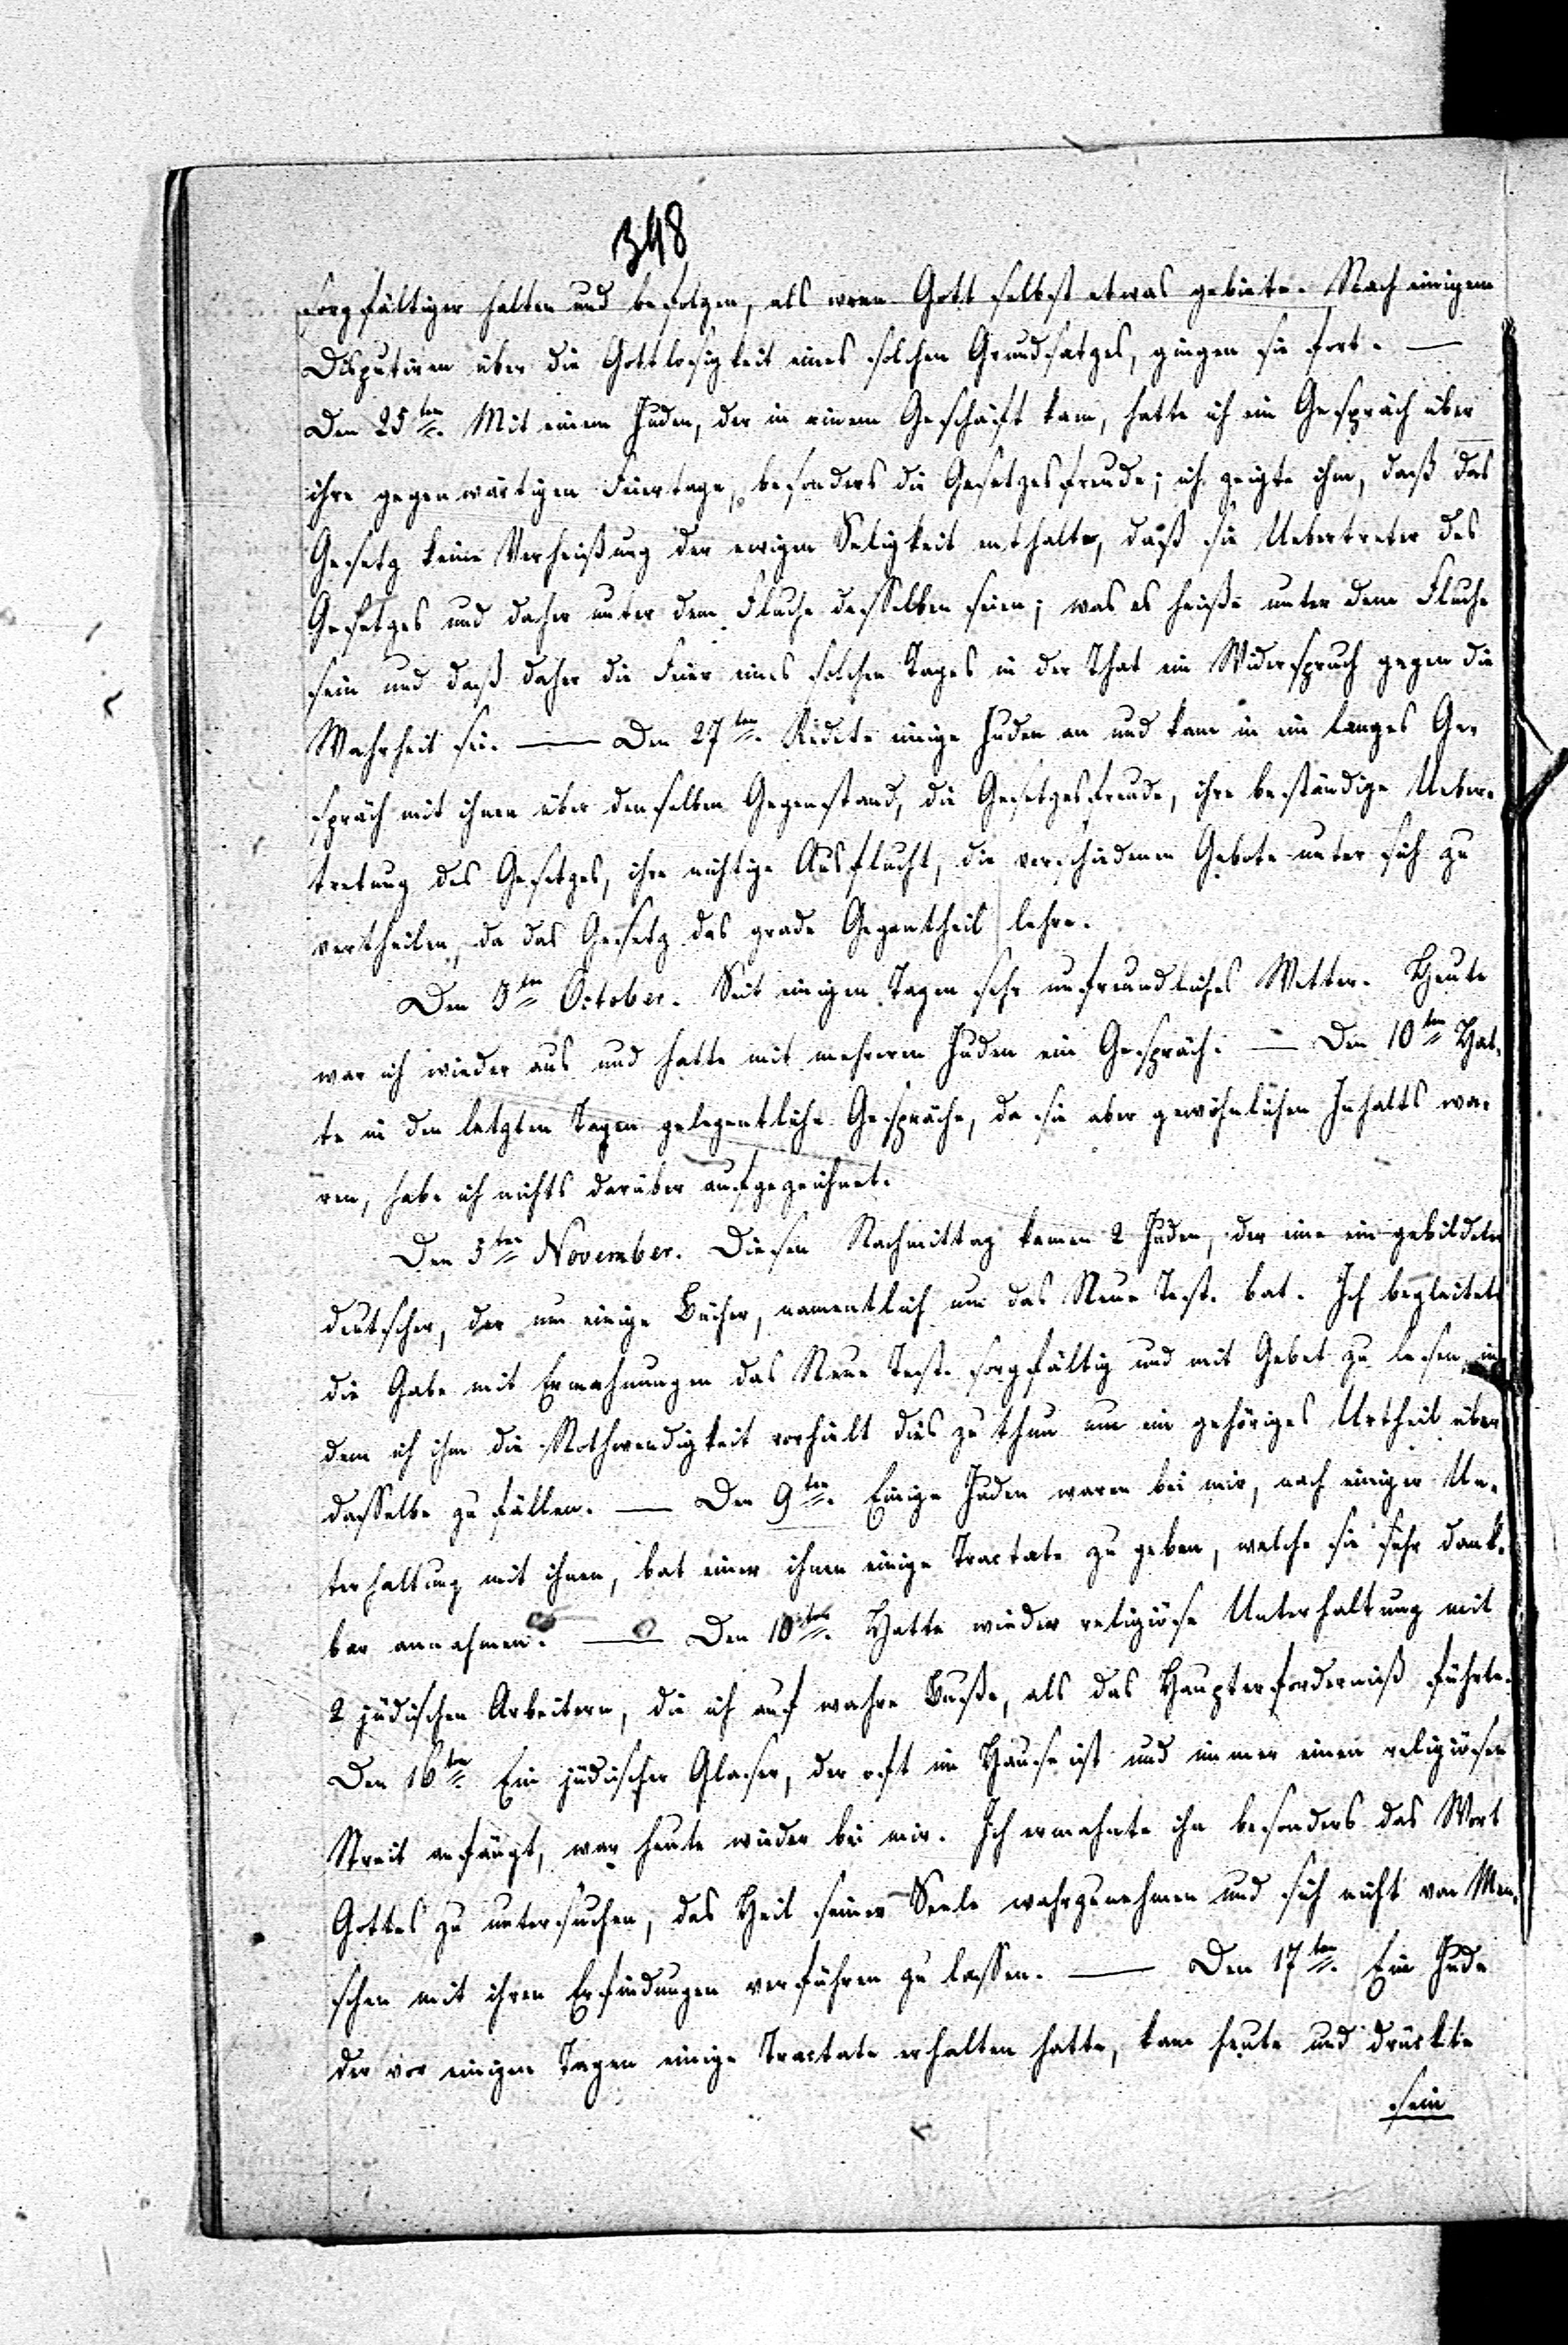 348
sorgfältiger halten und befolgen, als wenn Gott selbst etwas gebiete. Nach einigem
Disputiren über die Gottlosigkeit eines solchen Grundsatzes, gingen sie fort. —
Den 25ten. Mit einem Juden, der in einem Geschäift kam, hatte ich ein Gespräch über
ihre gegenwärtigen Feiertage, besonders die Gesetzesfreude; ich zeigte ihm, daß das
Gesetz keine Verheißung der ewigen Seligkeit enthalte, daß sie Uebertreter des
Gesetzes und daher unter dem Fluche desselben seien; was es heiße unter dem Fluche
sein und daß daher die Feier eines solchen Tages in der That ein Widerspruch gegen die
Wahrheit sei. — Den 27ten. Redete einige Juden an und kam in ein langes Ge-
spräch mit ihnen über denselben Gegenstand, die Gesetzesfreude, ihre beständige Ueber-
tretung des Gesetzes, ihre nichtige Ausflucht, die verschiedenen Gebote unter sich zu
vertheilen, da das Gesetz das grade Gegentheil lehre.
Den 8ten October. Seit einigen Tagen sehr unfreundliches Wetter. Heute
war ich wieder aus und hatte mit mehreren Juden ein Gespräch. — Den 10ten Hat-
te in den letzten Tagen gelegentliche Gespräche, da sie aber gewöhnlichen Inhalts wa-
ren, habe ich nichts darüber aufgezeichnet.
Den 5ten November. Diesen Nachmittag kamen 2 Juden, der eine ein gebildeter
deutscher, der um einige Bücher, namentlich um das Neue Test. bat. Ich begleitete
die Gabe mit Ermahnungen das Neue Test. sorgfältig und mit Gebet zu lesen, in-
dem ich ihm die Nothwendigkeit vorhielt dies zu thun um ein gehöriges Urtheil über
dasselbe zu fällen. — Den 9ten. Einige Juden waren bei mir, nach einiger Un-
terhaltung mit ihnen, bat einer ihnen einige Tractate zu geben, welche sie sehr dank-
bar annahmen. — Den 10ten. Hatte wieder religiöse Unterhaltung mit
2 jüdischen Arbeitern, die ich auf wahre Buße, als das Haupterforderniß führte.
Den 16ten Ein jüdischer Glaser, der oft im Hause ist und immer einen religiösen
Streit anfängt, war heute wieder bei mir. Ich ermahnte ihn besonders das Wort
Gottes zu untersuchen, das Heil seiner Seele wahrzunehmen und sich nicht von Men-
schen mit ihren Erfindungen verführen zu lassen. — Den 17ten. Ein Jude
der vor einigen Tagen einige Tractate erhalten hatte, kam heute und drückte
sein